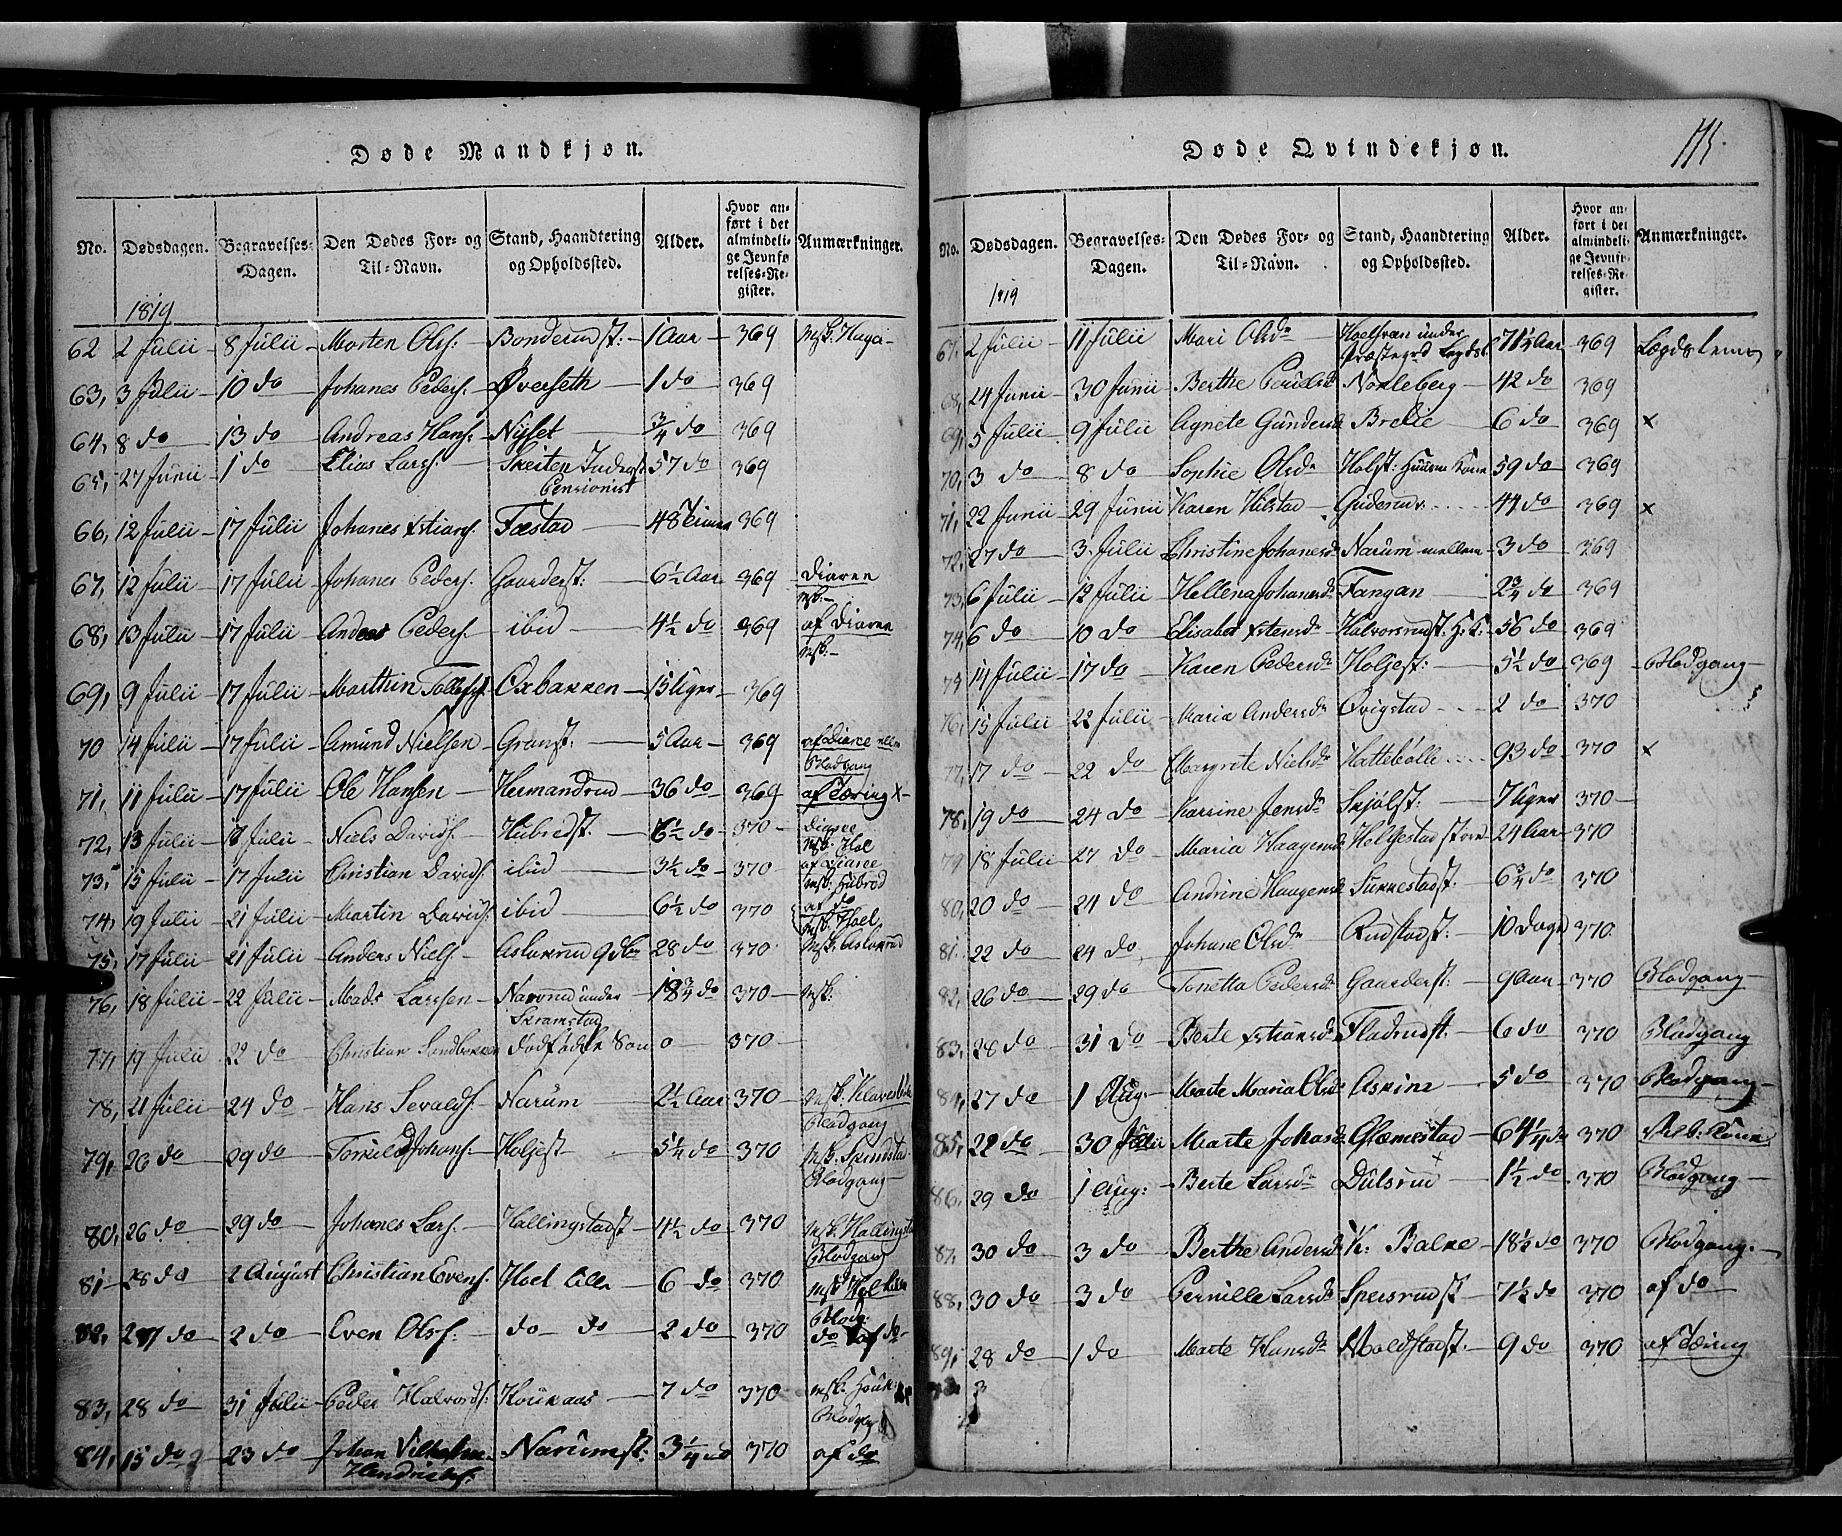 Døde Mandkjøn.
No. Dødsdagen. Begravelses-Dagen. Den Dødes For- og Til-Navn. Stand, Haandtering og Opholdssted. Alder. Hvor anført i det almindelige Jevnførelses-Register. Anmærkninger.
1819
62 2 Julii 8 Julii Morten Ols: Bonderudst: 1 Aar 369
63, 3 Julii 10 do Johanes Peders: Øverseth 1 do 369
64, 8 do 13 do Andreas Hans: Nyset 3/4 do 369
65, 27 Junii 1 do Elias Lars: 57 do 369
Pensionist
66, 12 Julii 17 Julii Johanes Xstians: Fæstad 48 Timer 369
67, 12 Julii 17 Julii Johanes Peders: Gaarderst: 6½ Aar 369 Diaree
68, 13 Julii 17 Julii Anders Peders: ibid 4½ do 369 af Diaree
69, 9 Julii 17 Julii Marthin Tollefs: Oxbakken 15 Uger 369
70 14 Julii 17 Julii Amund Nielsen Granst: 5 Aar 369 af Diaree eller
Blodgang
71, 11 Julii 17 Julii Ole Hansen Hermandrud 36 do 369 af Tæring X
72, 13 Julii Julii Niels Davids: Hubredst: 6½ do 370 Diaree
73, 15 Julii 17 Julii Christian Davids: ibid 3½ do 370 af Diaree
74, 19 Julii 21 Julii Martin Davids: ibid 6½ do 370 af do
75, 17 Julii 21 Julii Anders Niels: 28 do 370
76, 18 Julii 22 Julii Mads Larssen under 18¾ do 370
Skramstad
77, 19 Julii 22 do Christian Dødfødt Søn 0 370
78, 21 Julii 24 do Hans Sevalds: Narum 2½ Aar 370
Blodgang
79, 26 do 29 do Johans: Holjest 5¼ do 370
Blodgang
80, 26 do 29 do Johanes Lars: Hallingstadst 4½ do 370
Blodgang
81 28 do 2 August Christian Evens: Hoel lille 6 do 370
82, 27 do 2 do Even Ols: do do 2 do 370 do af do
83, 28 do 31 Julii Peder Halvords: Houkaas 7 do 370
84, 15 do 23 do Johan Vilhelm Narumst: 3¼ do 370 af do
Hendrichs:
Døde Qvindekjøn.
115.
No. Dødsdagen. Begravelses-Dagen. Den Dødes For- og Til-Navn. Stand, Haandtering og Opholdssted. Alder. Hvor anført i det almindelige Jevnførelses-Register. Anmærkninger.
1819
67, 2 Julii 11 Julii Mari Olsdr under 71½ Aar 369 Lægdslem
68, 24 Junii 30 Junii Berthe Norleberg 42 do 369
69, 5 Julii 9 Julii Agnete Gundersd Brelie 6 do 369 x
70, 3 do 8 do Sophie Olsdr Holst: 59 do 369
71, 22 Junii 29 Junii Karen Hilstad Guderud 44 do 369 x
72, 27 do 3 Julii Christine Johanesd Narum mellem 3 do 369
73, 6 Julii 12 Julii Hellena Johanesd Fangan 2¾ do 369
74, 6 do 10 do Elisabet Xstensd Halvorsrudst: 56 do 369
75 14 Julii 17 do Karen Pedersdr Holjest: 5½ do 369 Blodgang
76, 15 Julii 22 Julii Maria Andersdr Qvigstad 2 do 370
77, 17 do 22 do Margrete Nielsdr Hattebølle 93 do 370 x
78, 19 do 24 do Karine Jensdr Skjølst: 7 Uger 370
79 18 Julii 27 do Maria Haagensd Helgestad 24 Aar 370
80, 20 do 24 do Andrine Haagensd Sukkestadst: 6¾ do 370
81. 22 do 24 do Johane Olsdr Rudstadst: 10 Dage 370
82, 26 do 29 do Tonetta Pedersd Gaarderst: 9 Aar 370 Blodgang
83, 28 do 31 do Berte Xstiansd Fladrudst: 6 do 370 Blodgang
84, 27 do 1 Aug: Marte Maria Olsd Askine 5 do 370 Blodgang
85, 22 do 30 Julii Marte Johansd Glæmestad 64¼ do 370
86, 29 do 1 Aug: Berte Larsdr Dulsrud 1½ do 370 Blodgang
87, 30 do 3 do Berthe Andersd K: Balke 18½ do 370 Blodgang
88, 30 do 3 do Pernille Larsdr Spersrudst 7½ do 370 af do
89, 28 do 1 do Marte Hansdr Woldstadst: 9 do 370 af Tæring